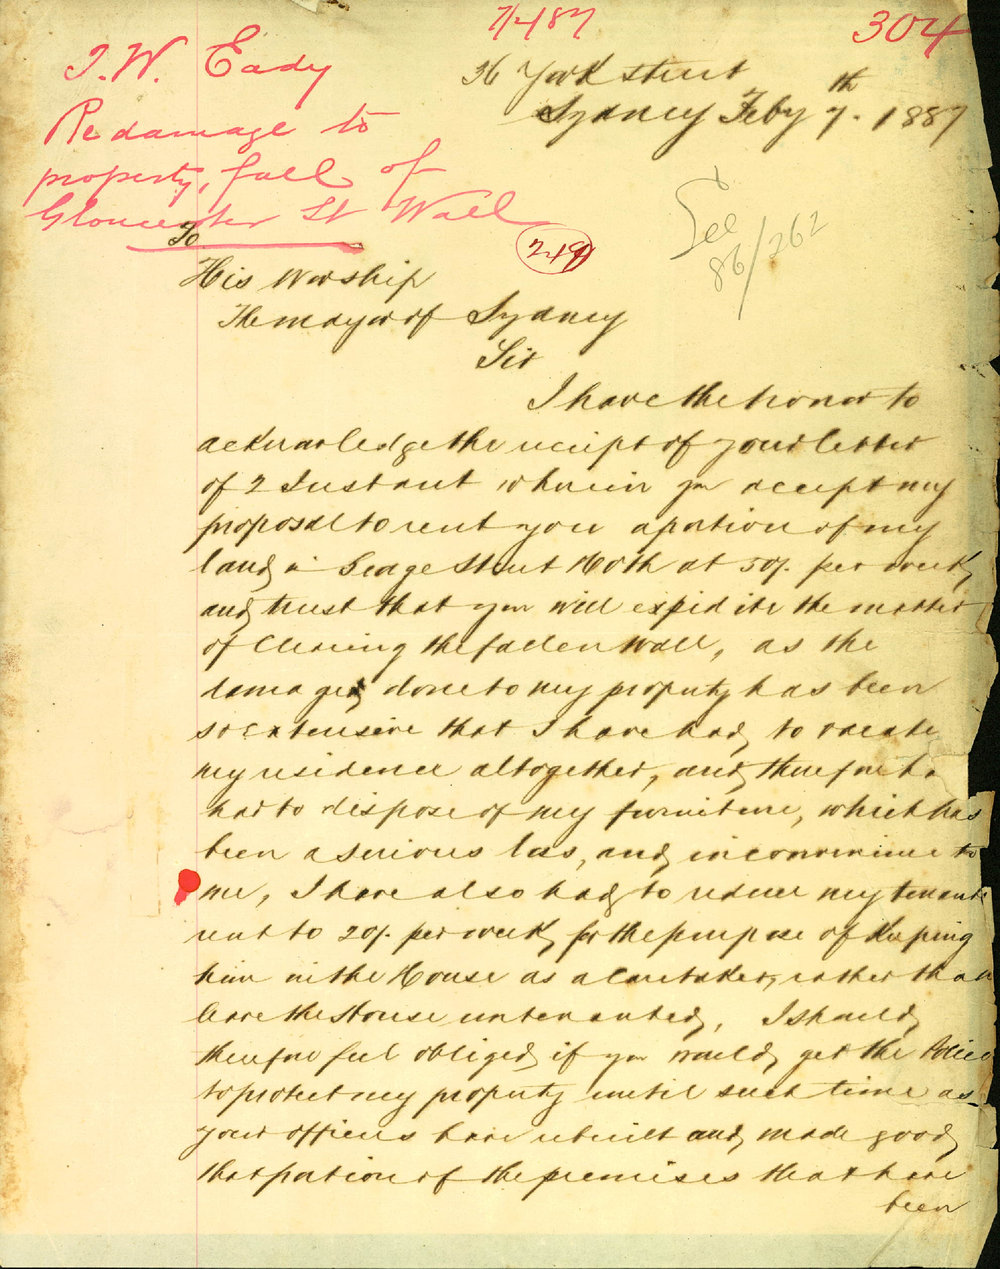 7/2/87
304
J.W. Eady
Re damage to
property, fall of
Gloucester St Wall
36 York street
Sydney Feby 7th. 1887
See
86/262
249
To
His Worship
The mayor of Sydney
Sir
I have the honor to
acknowledge the receipt of your letter
of 2 Instant wherein you accept my
proposal to rent you a portion of my
land in Street North at 50/. per week,
and trust that you will expidite the matter
of Clearing the fallen Wall, as the
damages done to my property has been
so extensive that I have had, to vacate
my residence altogether, and, therefore
had to dispose of my furniture, which has
been a serious loss, and, inconvenience to
me, I have also had, to reduce my tenants
rent to 20/. per week, for the purpose of Keeping
him in the House as a Caretaker, rather than
leave the House untenanted, I should,
therefore feel obliged, if you would, get the Police
to protect my property until such time as
your officers have rebuilt and, made good,
that portion of the premises that have
been